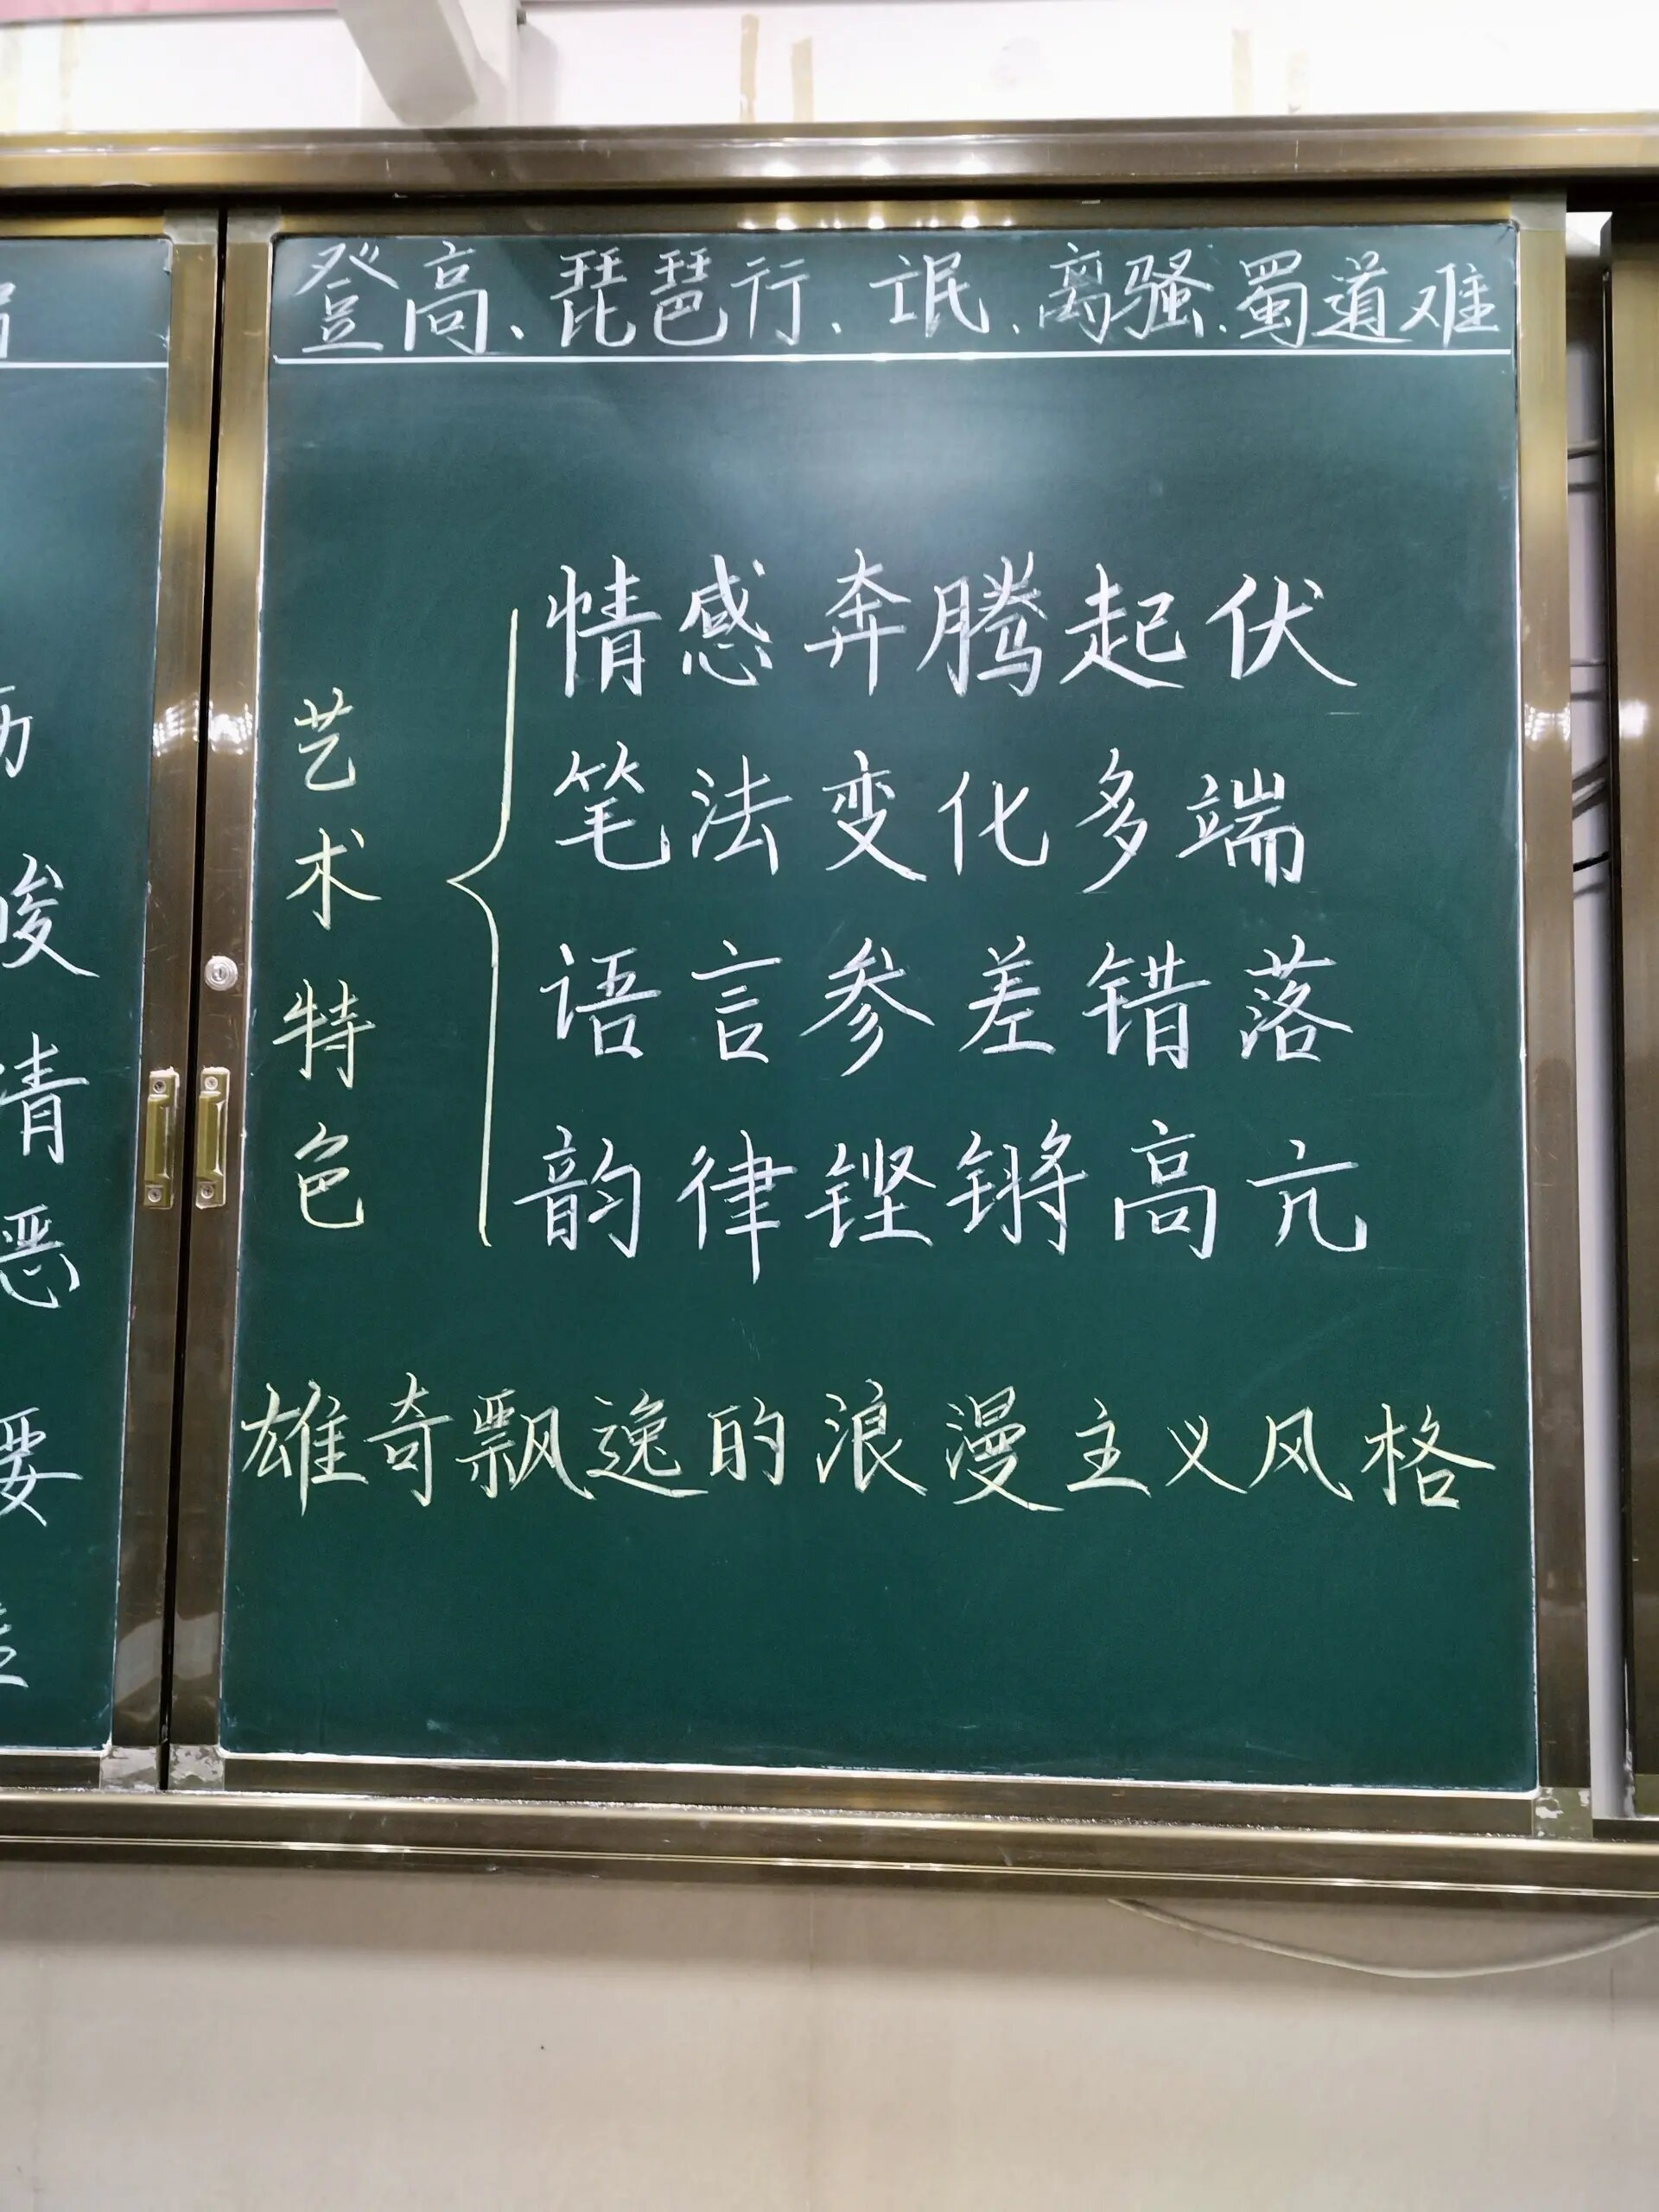 登高、琵琶行、氓、离骚、蜀道难
艺术特色
情感奔腾起伏
笔法变化多端
语言参差错落
韵律铿锵高亢
雄奇飘逸的浪漫主义风格
峻
清
恶
要